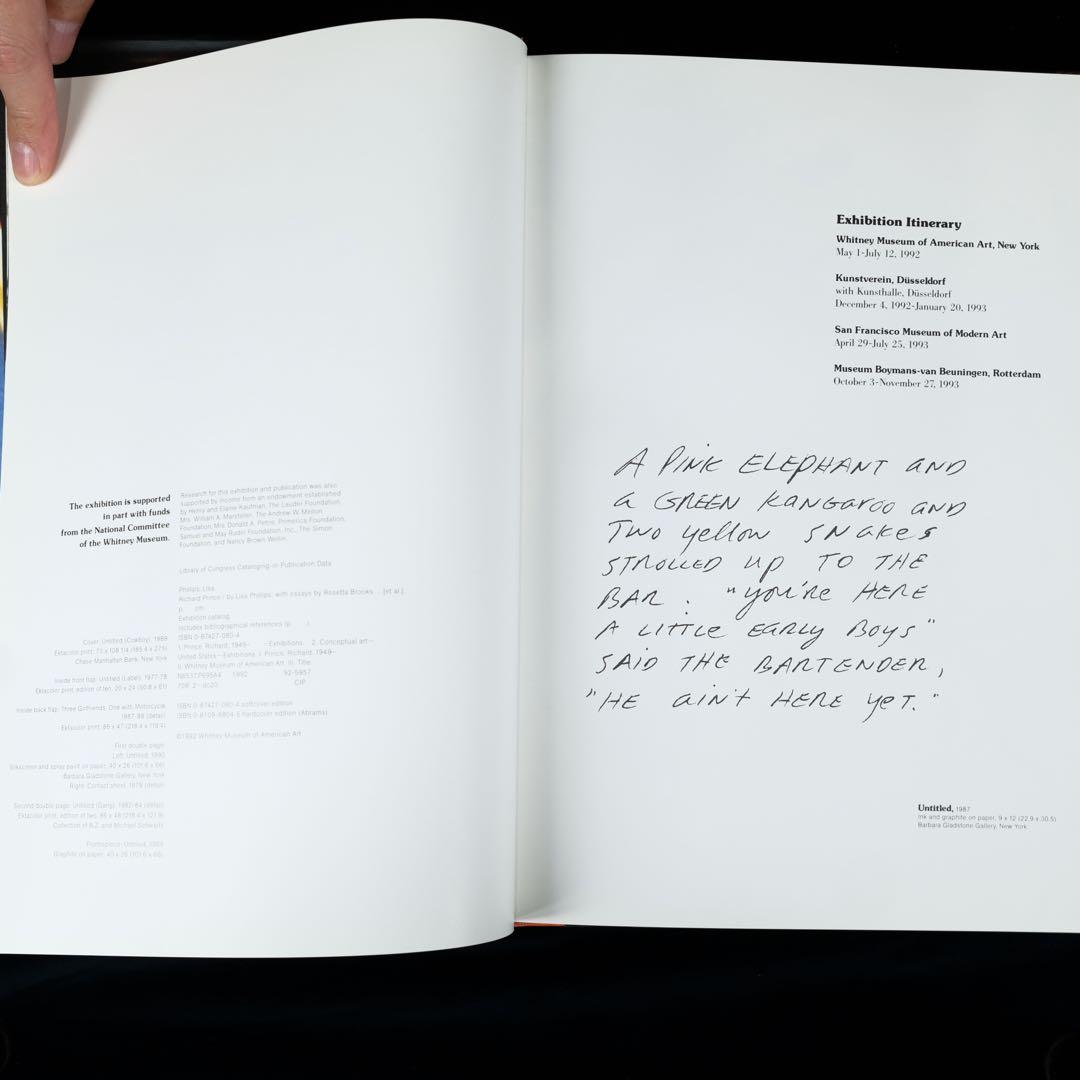 The exhibition is supported
in part with funds
from the National Committee
of the Whitney Museum.
Research for this exhibition and publication was also
supported by income from an endowment established
by Henry and Elaine Kaufman, The Lauder Foundation,
Mrs. William A. Marsteller, The Andrew W. Mellon
Foundation, Mrs. Donald A. Petrie, Primerica Foundation,
Samuel and May Rudin Foundation, Inc., The Simon
Foundation, and Nancy Brown Wellin.
Library of Congress Cataloging-in-Publication Data
Phillips, Lisa
Richard Prince / by Lisa Phillips; with essays by Rosetta Brooks ... [et al.].
p. cm.
Exhibition catalog.
Includes bibliographical references (p. ).
ISBN 0-87427-080-4
1. Prince, Richard, 1949- —Exhibitions. 2. Conceptual art—
United States—Exhibitions. I. Prince, Richard, 1949-
II. Whitney Museum of American Art. III. Title.
N6537.P695A4 1992 92-5957
709'.2—dc20 CIP
ISBN 0-87427-080-4 softcover edition
ISBN 0-8109-6804-5 hardcover edition (Abrams)
©1992 Whitney Museum of American Art
Cover: Untitled (Cowboy), 1989
Ektacolor print, 73 x 108 1/4 (185.4 x 275)
Chase Manhattan Bank, New York
Inside front flap: Untitled (Label), 1977-78
Ektacolor print, edition of ten, 20 x 24 (50.8 x 61)
Inside back flap: Three Girlfriends, One with Motorcycle,
1987-88 (detail)
Ektacolor print, 86 x 47 (218.4 x 119.4)
First double page:
Left: Untitled, 1990
Silkscreen and spray paint on paper, 40 x 26 (101.6 x 66)
Barbara Gladstone Gallery, New York
Right: Contact sheet, 1979 (detail)
Second double page: Untitled (Gang), 1982-84 (detail)
Ektacolor print, edition of two, 86 x 48 (218.4 x 121.9)
Collection of B.Z. and Michael Schwartz
Frontispiece: Untitled, 1989
Graphite on paper, 40 x 26 (101.6 x 66)
Exhibition Itinerary
Whitney Museum of American Art, New York
May 1-July 12, 1992
Kunstverein, Düsseldorf
with Kunsthalle, Düsseldorf
December 4, 1992-January 20, 1993
San Francisco Museum of Modern Art
April 29-July 25, 1993
Museum Boymans-van Beuningen, Rotterdam
October 3-November 27, 1993
A PINK ELEPHANT AND
a GREEN KANGAROO AND
Two yellow SNakes
STROLLED up TO THE
BAR. "you're HERE
A LITTLE EARLY BOYS"
SAID THE BARTENDER,
"HE ain't HERE yeT."
Untitled, 1987
Ink and graphite on paper, 9 x 12 (22.9 x 30.5)
Barbara Gladstone Gallery, New York